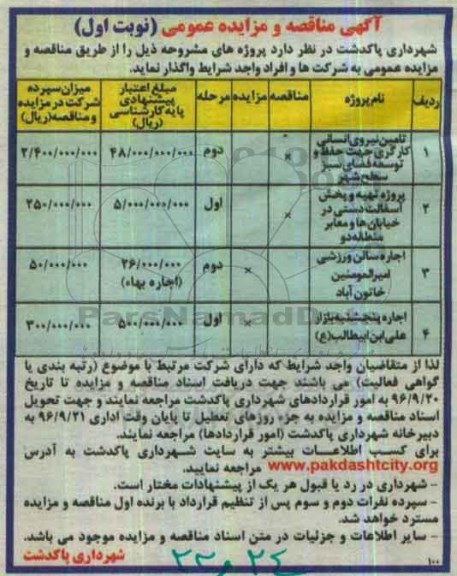 آگهی مناقصه و مزایده عمومی (نوبت اول)
شهرداری پاکدشت در نظر دارد پروژه های مشروحه ذیل را از طریق مناقصه و
مزایده عمومی به شرکت ها و افراد واجد شرایط واگذار نماید.
ردیف نام پروژه مناقصه مزایده مرحله مبلغ اعتبار پیشنهادی پایه کارشناسی (ریال) میزان سپرده شرکت در مزایده و مناقصه (ریال)
۱ تامین نیروی انسانی کارگری جهت حفظ و توسعه فضای سبز سطح شهر × دوم ۴۸/۰۰۰/۰۰۰/۰۰۰ ۲/۴۰۰/۰۰۰/۰۰۰
۲ پروژه تهیه و پخش آسفالت دستی در خیابان ها و معابر منطقه دو × اول ۵/۰۰۰/۰۰۰/۰۰۰ ۲۵۰/۰۰۰/۰۰۰
۳ اجاره سالن ورزشی امیرالمومنین خاتون آباد × دوم ۲۶/۰۰۰/۰۰۰ (اجاره بهاء) ۵۰/۰۰۰/۰۰۰
۴ اجاره پنجشنبه بازار علی ابن ابیطالب(ع) × اول ۵۰۰/۰۰۰/۰۰۰ ۳۰۰/۰۰۰/۰۰۰
ParsNamadData
لذا از متقاضیان واجد شرایط که دارای شرکت مرتبط با موضوع (رتبه بندی یا
گواهی فعالیت) می باشند جهت دریافت اسناد مناقصه و مزایده تا تاریخ
۹۶/۹/۲۰ به امور قراردادهای شهرداری پاکدشت مراجعه نمایند و جهت تحویل
اسناد مناقصه و مزایده به جزء روزهای تعطیل تا پایان وقت اداری ۹۶/۹/۲۱ به
دبیرخانه شهرداری پاکدشت (امور قراردادها) مراجعه نمایند.
برای کسب اطلاعات بیشتر به سایت شهرداری پاکدشت به آدرس
www.pakdashtcity.org مراجعه نمایید.
- شهرداری در رد یا قبول هر یک از پیشنهادات مختار است.
- سپرده نفرات دوم و سوم پس از تنظیم قرارداد با برنده اول مناقصه و مزایده
مسترد خواهد شد.
- سایر اطلاعات و جزئیات در متن اسناد مناقصه و مزایده موجود می باشد.
۱۰۰ شهرداری پاکدشت